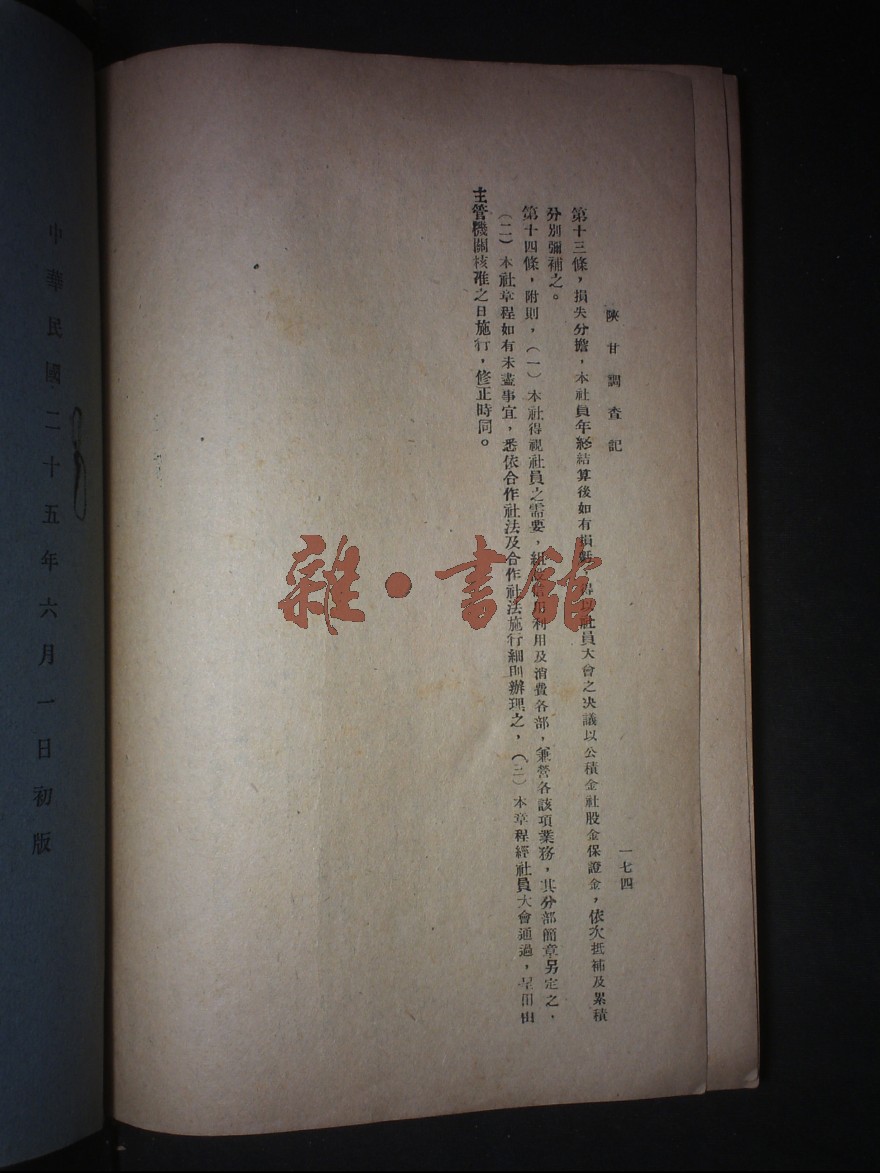 陝甘調查記
一七四
第十三條，損失分擔，本社員年終結算後如有損 得以社員大會之決議以公積金社股金保證金，依次抵補及累積
分別彌補之。
第十四條，附則，（一）本社得視社員之需要，組設信用利用及消費各部，兼營各該項業務，其分部簡章另定之，
（二）本社章程如有未盡事宜，悉依合作社法及合作社法施行細則辦理之，（三）本章程經社員大會通過，呈由
主管機關核准之日施行，修正時同。
中華民國二十五年六月一日初版
雜·書館